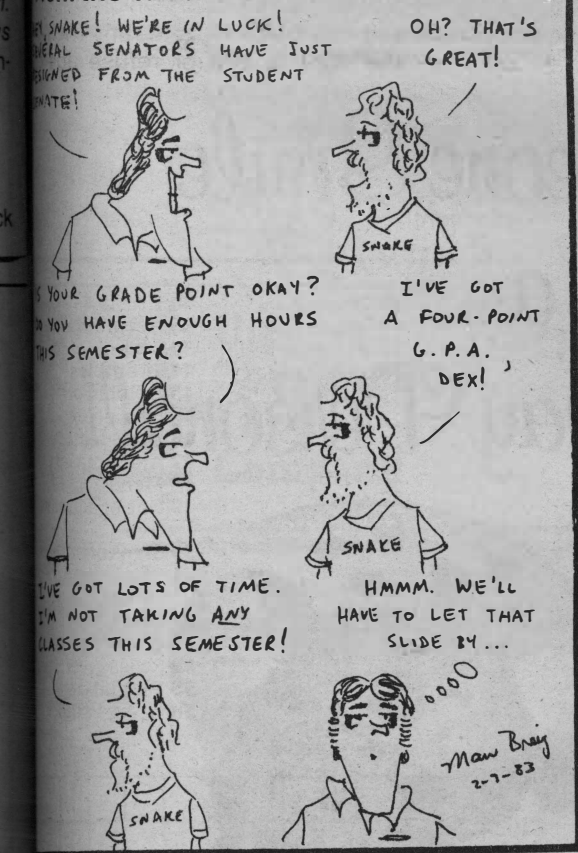 EY, SNAKE! WE'RE IN LUCK!
ERAL SENATORS HAVE JUST
ESIGNED FROM THE STUDENT
ENATE!
OH? THAT'S
GREAT!
SNAKE
S YOUR GRADE POINT OKAY?
DO YOU HAVE ENOUGH HOURS
THIS SEMESTER?
I'VE GOT
A FOUR-POINT
G.P.A.,
DEX!
SNAKE
I'VE GOT LOTS OF TIME.
I'M NOT TAKING ANY
CLASSES THIS SEMESTER!
HMMM. WE'LL
HAVE TO LET THAT
SLIDE BY...
SNAKE
2-7-83